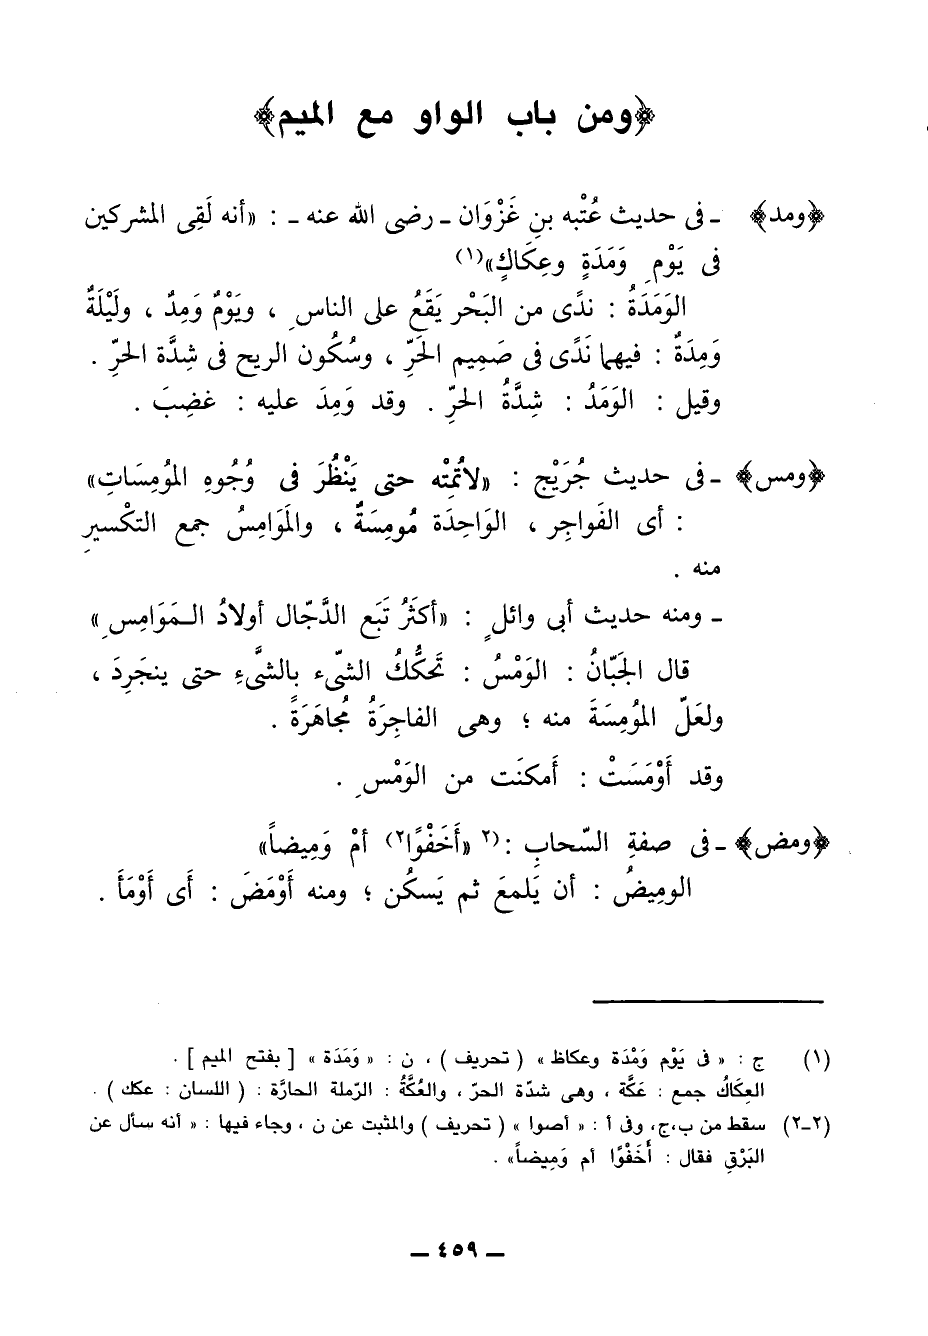 ﴿ومن باب الواو مع الميم﴾
﴿ومد﴾ ـ فى حديث عُتْبه بنِ غَزْوَان ـ رضى الله عنه ـ : «أنه لَقِى المشركين
فى يَوْمِ وَمَدَةٍ وعِكَاكٍ»(١)
الوَمَدَةُ : ندًى من البَحْر يَقَعُ على الناسِ ، ويَوْمٌ وَمِدٌ ، ولَيْلَةٌ
وَمِدَةٌ : فيها نَدًى فى صَمِيم الحَرِّ ، وسُكُون الريح فى شِدَّة الحَرِّ .
وقيل : الوَمَدُ : شِدَّةُ الحَرِّ . وقد وَمِدَ عليه : غضِبَ .
﴿ومس﴾ ـ فى حديث جُرَيْج : «لاتُمِتْه حتى يَنْظُرَ فى وُجُوهِ المُؤمِسَاتِ»
: أى الفَواجِر ، الوَاحِدَة مُومِسَةٌ ، والمَوَامِسُ جمع التكْسيرِ
منه .
ـ ومنه حديث أبى وائلٍ : «أكثَرُ تَبَع الدَّجّال أولادُ المَوَامِسِ»
قال الجَبّانُ : الوَمْسُ : تَحَكُّكُ الشّىء بالشَّىءِ حتى ينجَرِدَ ،
ولعَلّ المُؤمِسَةَ منه ؛ وهى الفاجِرَةُ مُجاهَرَةً .
وقد أَوْمَسَتْ : أمكنَت من الوَمْسِ .
﴿ومض﴾ ـ فى صفةِ السّحابِ :(٢ «أَخَفْوًا٢) أمْ وَمِيضاً»
الومِيضُ : أن يَلمعَ ثم يَسكُن ؛ ومنه أَوْمَضَ : أى أَوْمَأَ .
(١) ج : « فى يَوْم وَمْدَة وعكاظ » ( تحريف ) ، ن : « وَمَدَة » [ بفتح الميم ] .
العِكَاكُ جمع : عَكَّة ، وهى شدّة الحرّ ، والعُكَّةُ : الرّملة الحارَّة : ( اللسان : عكك ) .
(٢ـ٢) سقط من ب،ج، وفى أ : « أصوا » ( تحريف ) والمثبت عن ن ، وجاء فيها : « أنه سأل عن
البَرْقِ فقال : أَخَفْوًا أم وَمِيضاً» .
ـ ٤٥٩ ـ